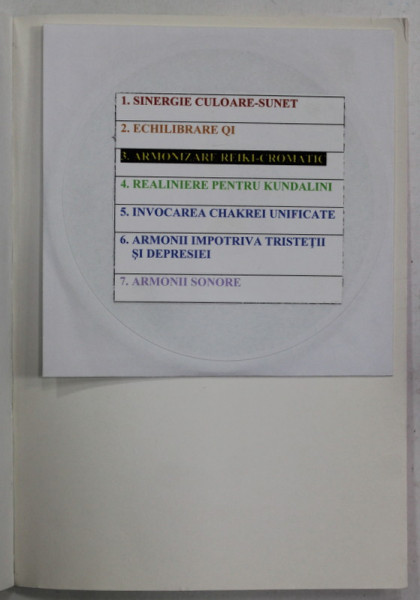 1. SINERGIE CULOARE-SUNET
2. ECHILIBRARE QI
3. ARMONIZARE REIKI-CROMATIC
4. REALINIERE PENTRU KUNDALINI
5. INVOCAREA CHAKREI UNIFICATE
6. ARMONII IMPOTRIVA TRISTEȚII
ȘI DEPRESIEI
7. ARMONII SONORE